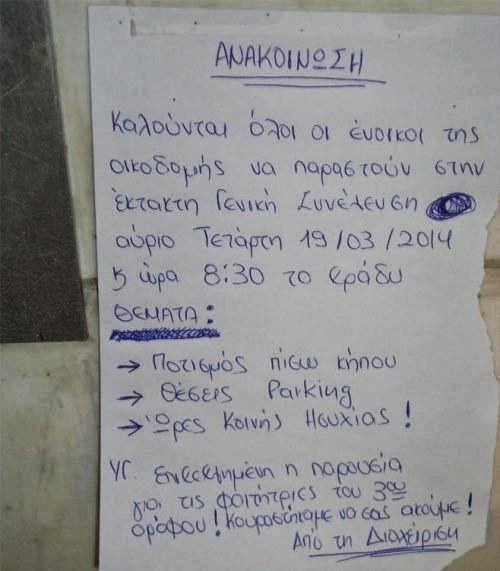 ΑΝΑΚΟΙΝΩΣΗ
Καλούνται όλοι οι ένοικοι της
οικοδομής να παραστούν στην
έκτακτη Γενική Συνέλευση
αύριο Τετάρτη 19/03/2014
κ ώρα 8:30 το βράδυ
ΘΕΜΑΤΑ:
→ Ποτισμός πίσω κήπου
→ Θέσεις Parking
→ Ώρες Κοινής Ησυχίας!
ΥΓ. Επιβεβλημένη η παρουσία
για τις φοιτήτριες του 3ου
ορόφου! Κουραστήκαμε να σας ακούμε!
Από τη Διαχείριση